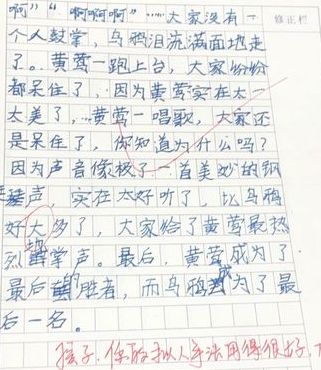 啊”“啊啊啊”……大家没有一
修正栏
个人鼓掌，乌鸦泪流满面地走
了。黄莺一跑上台，大家纷纷
都呆住了，因为黄莺实在太一
太美了，黄莺一唱歌，大家还
是呆住了，你知道为什么吗？
因为声音像极了一首美妙的钢
琴声 实在太好听了，比乌鸦
好太多了，大家给了黄莺最热
烈的掌声。最后，黄莺成为了
最后的胜者，而乌鸦成为了最
后一名。
孩子，你的拟人手法用得很好，